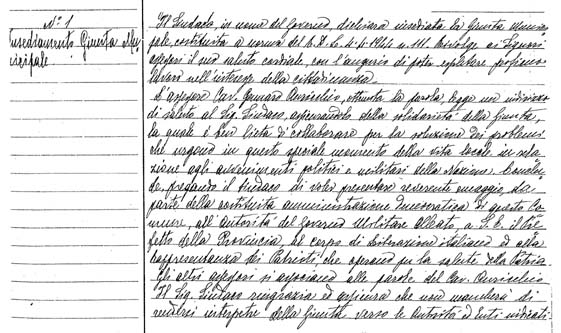 N° 1
Insediamento Giunta Mu=
nicipale.
Il Sindaco, in nome del Governo, dichiara insediata la Giunta Munici=
pale, costituita a norma del R.D.L. 4-4-1944 n. 111. Rivolge ai Signori
assessori il suo saluto cordiale, con l'augurio di poter esplicare proficuo
lavoro nell'interesse della cittadinanza.
L'assessore Cav. Gennaro Auricchio, ottenuta la parola, legge un indirizzo
di saluto al Sig. Sindaco, assicurandolo della solidarietà della Giunta,
la quale è ben lieta di collaborare per la soluzione dei problemi
che urgono in questo speciale momento della vita locale in rela
zione agli avvenimenti politici e militari della Nazione. Conclu
de, pregando il Sindaco di voler presentare reverente omaggio, da
parte della costituita amministrazione democratica di questo Co
mune, all'Autorità del Governo Militare Alleato, a S.E. il Pre
fetto della Provincia, al corpo di liberazione italiano ed alla
rappresentanza dei Patrioti che operano per la salute della Patria.
Gli altri assessori si associano alle parole del Cav. Auricchio
Il Sig. Sindaco ringrazia ed assicura che non mancherà di
rendersi interprete della Giunta verso le Autorità ed Enti indicati